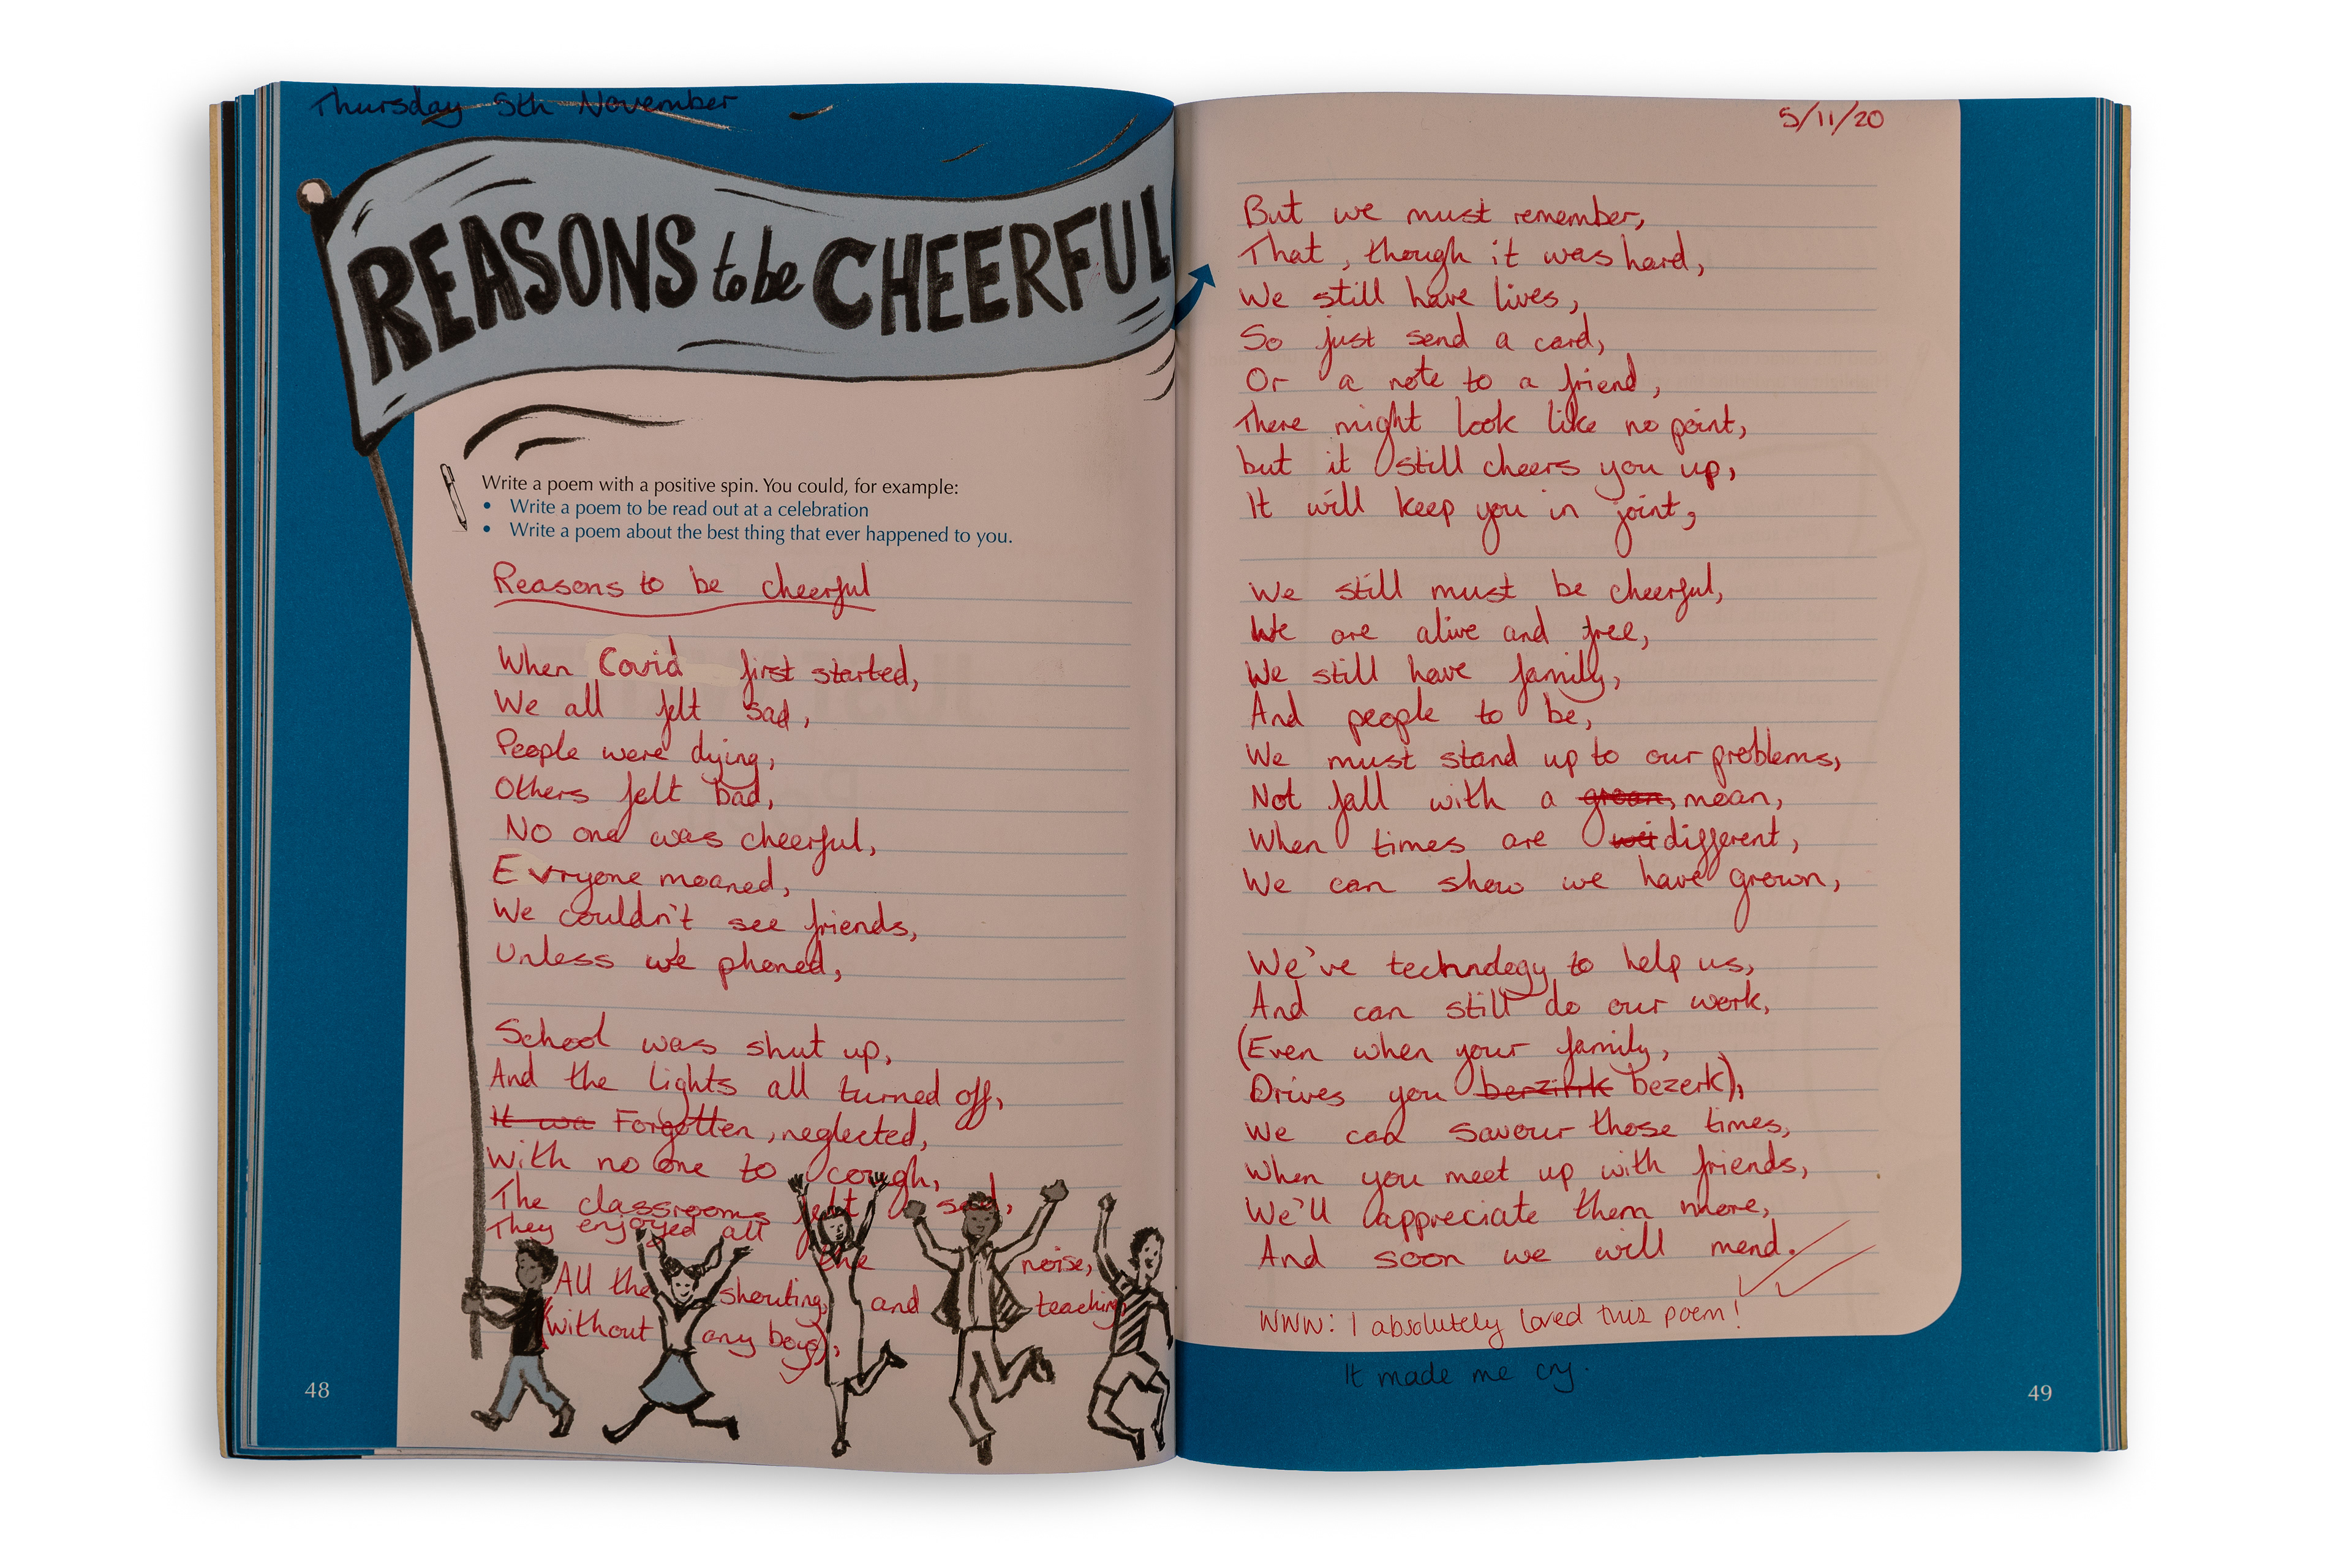 Thursday 5th November
REASONS to be CHEERFUL
Write a poem with a positive spin. You could, for example:
• Write a poem to be read out at a celebration
• Write a poem about the best thing that ever happened to you.
Reasons to be cheerful
When Covid first started,
We all felt sad,
People were dying,
Others felt bad,
No one was cheerful,
Evryone moaned,
We couldn't see friends,
Unless we phoned,
School was shut up,
And the lights all turned off,
It wa Forgotten, neglected,
With no one to cough,
The classrooms felt sad,
They enjoyed all the noise,
All the shouting, and teaching
(without any boys),
48
5/11/20
But we must remember,
That, though it was hard,
We still have lives,
So just send a card,
Or a note to a friend,
There might look like no point,
but it still cheers you up,
It will keep you in joint,
We still must be cheerful,
We are alive and free,
We still have family,
And people to be,
We must stand up to our problems,
Not fall with a groan, moan,
When times are wei different,
We can show we have grown,
We've technology to help us,
And can still do our work,
(Even when your family,
Drives you berzirk bezerk),
We can savour those times,
When you meet up with friends,
We'll appreciate them more,
And soon we will mend.
WWW: I absolutely loved this poem!
It made me cry.
49